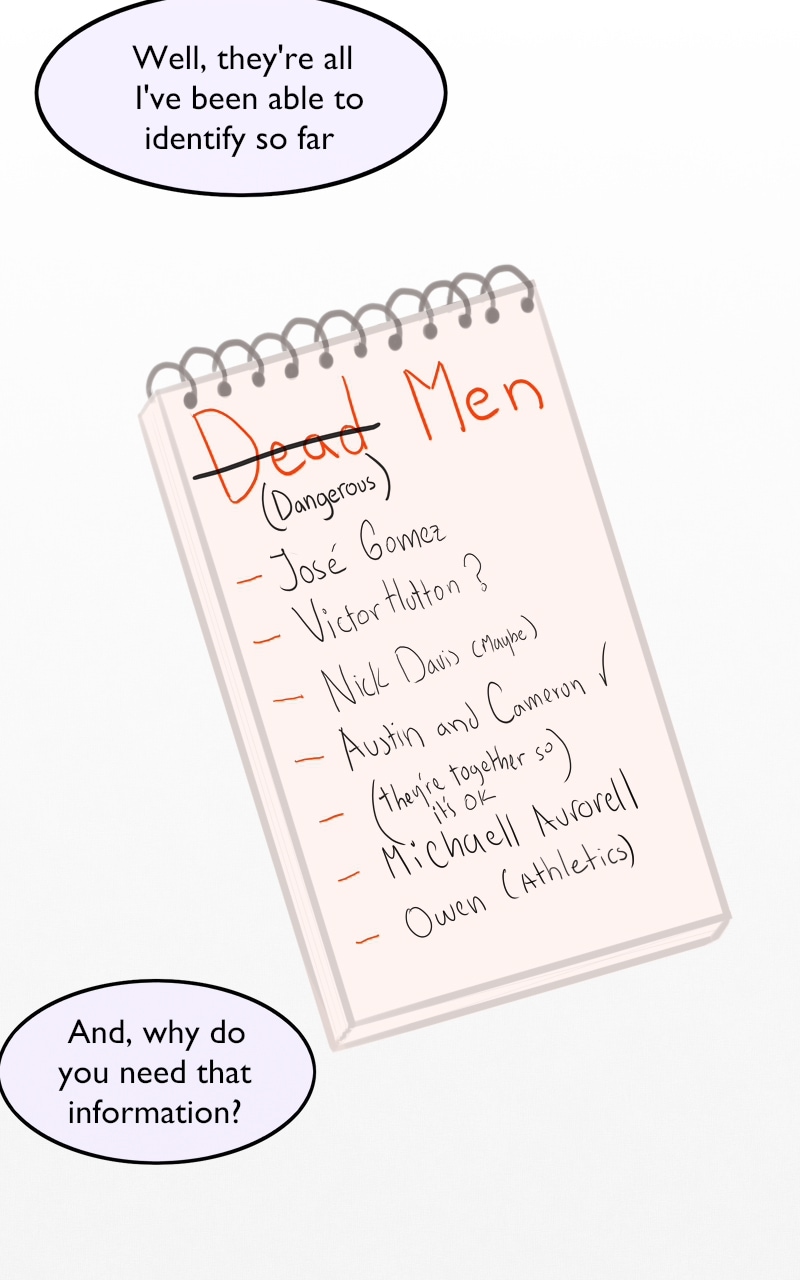 Well, they're all
I've been able to
identify so far
Dead Men
(Dangerous)
– José Gomez
– Victor Hutton ?
– Nick Davis (Maybe)
– Austin and Cameron ✓
– (they're together so
it's OK)
– Michaell Aurorell
– Owen (Athletics)
And, why do
you need that
information?